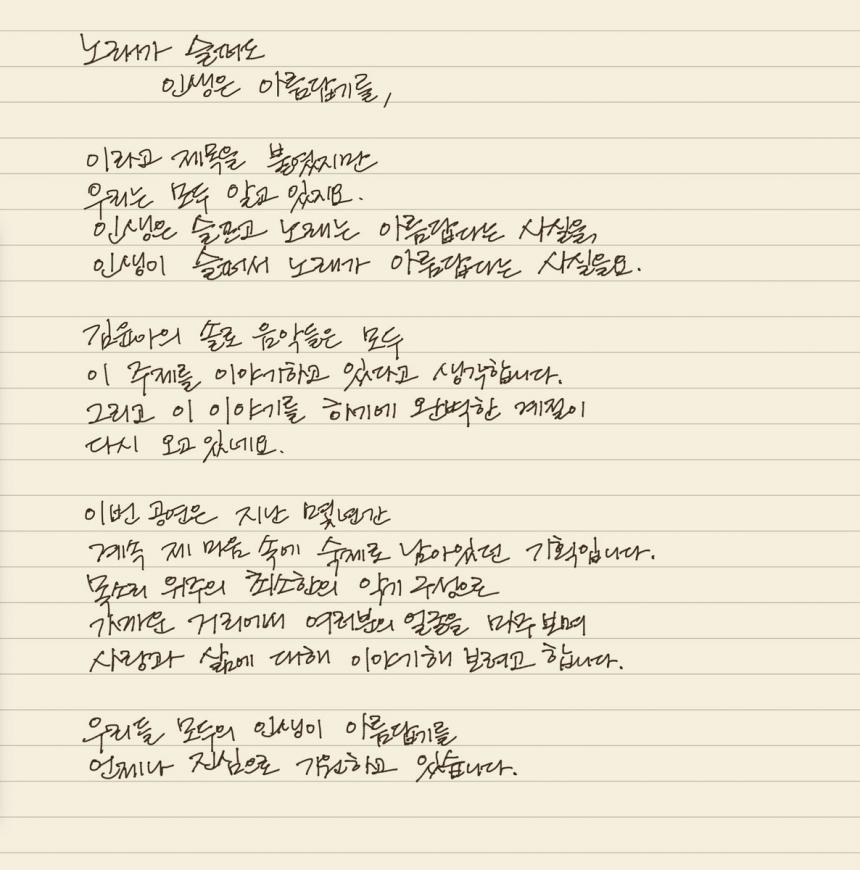 노래가 슬퍼도
인생은 아름답기를,
이라고 제목을 붙였지만
우리는 모두 알고 있지요.
인생은 슬프고 노래는 아름답다는 사실을,
인생이 슬퍼서 노래가 아름답다는 사실을요.
김윤아의 솔로 음악들은 모두
이 주제를 이야기하고 있다고 생각합니다.
그리고 이 이야기를 하기에 완벽한 계절이
다시 오고 있네요.
이번 공연은 지난 몇년간
계속 제 마음 속에 숙제로 남아있던 기획입니다.
목소리 위주의 최소한의 악기 구성으로
가까운 거리에서 여러분의 얼굴을 마주 보며
사랑과 삶에 대해 이야기해 보려고 합니다.
우리들 모두의 인생이 아름답기를
언제나 진심으로 기원하고 있습니다.